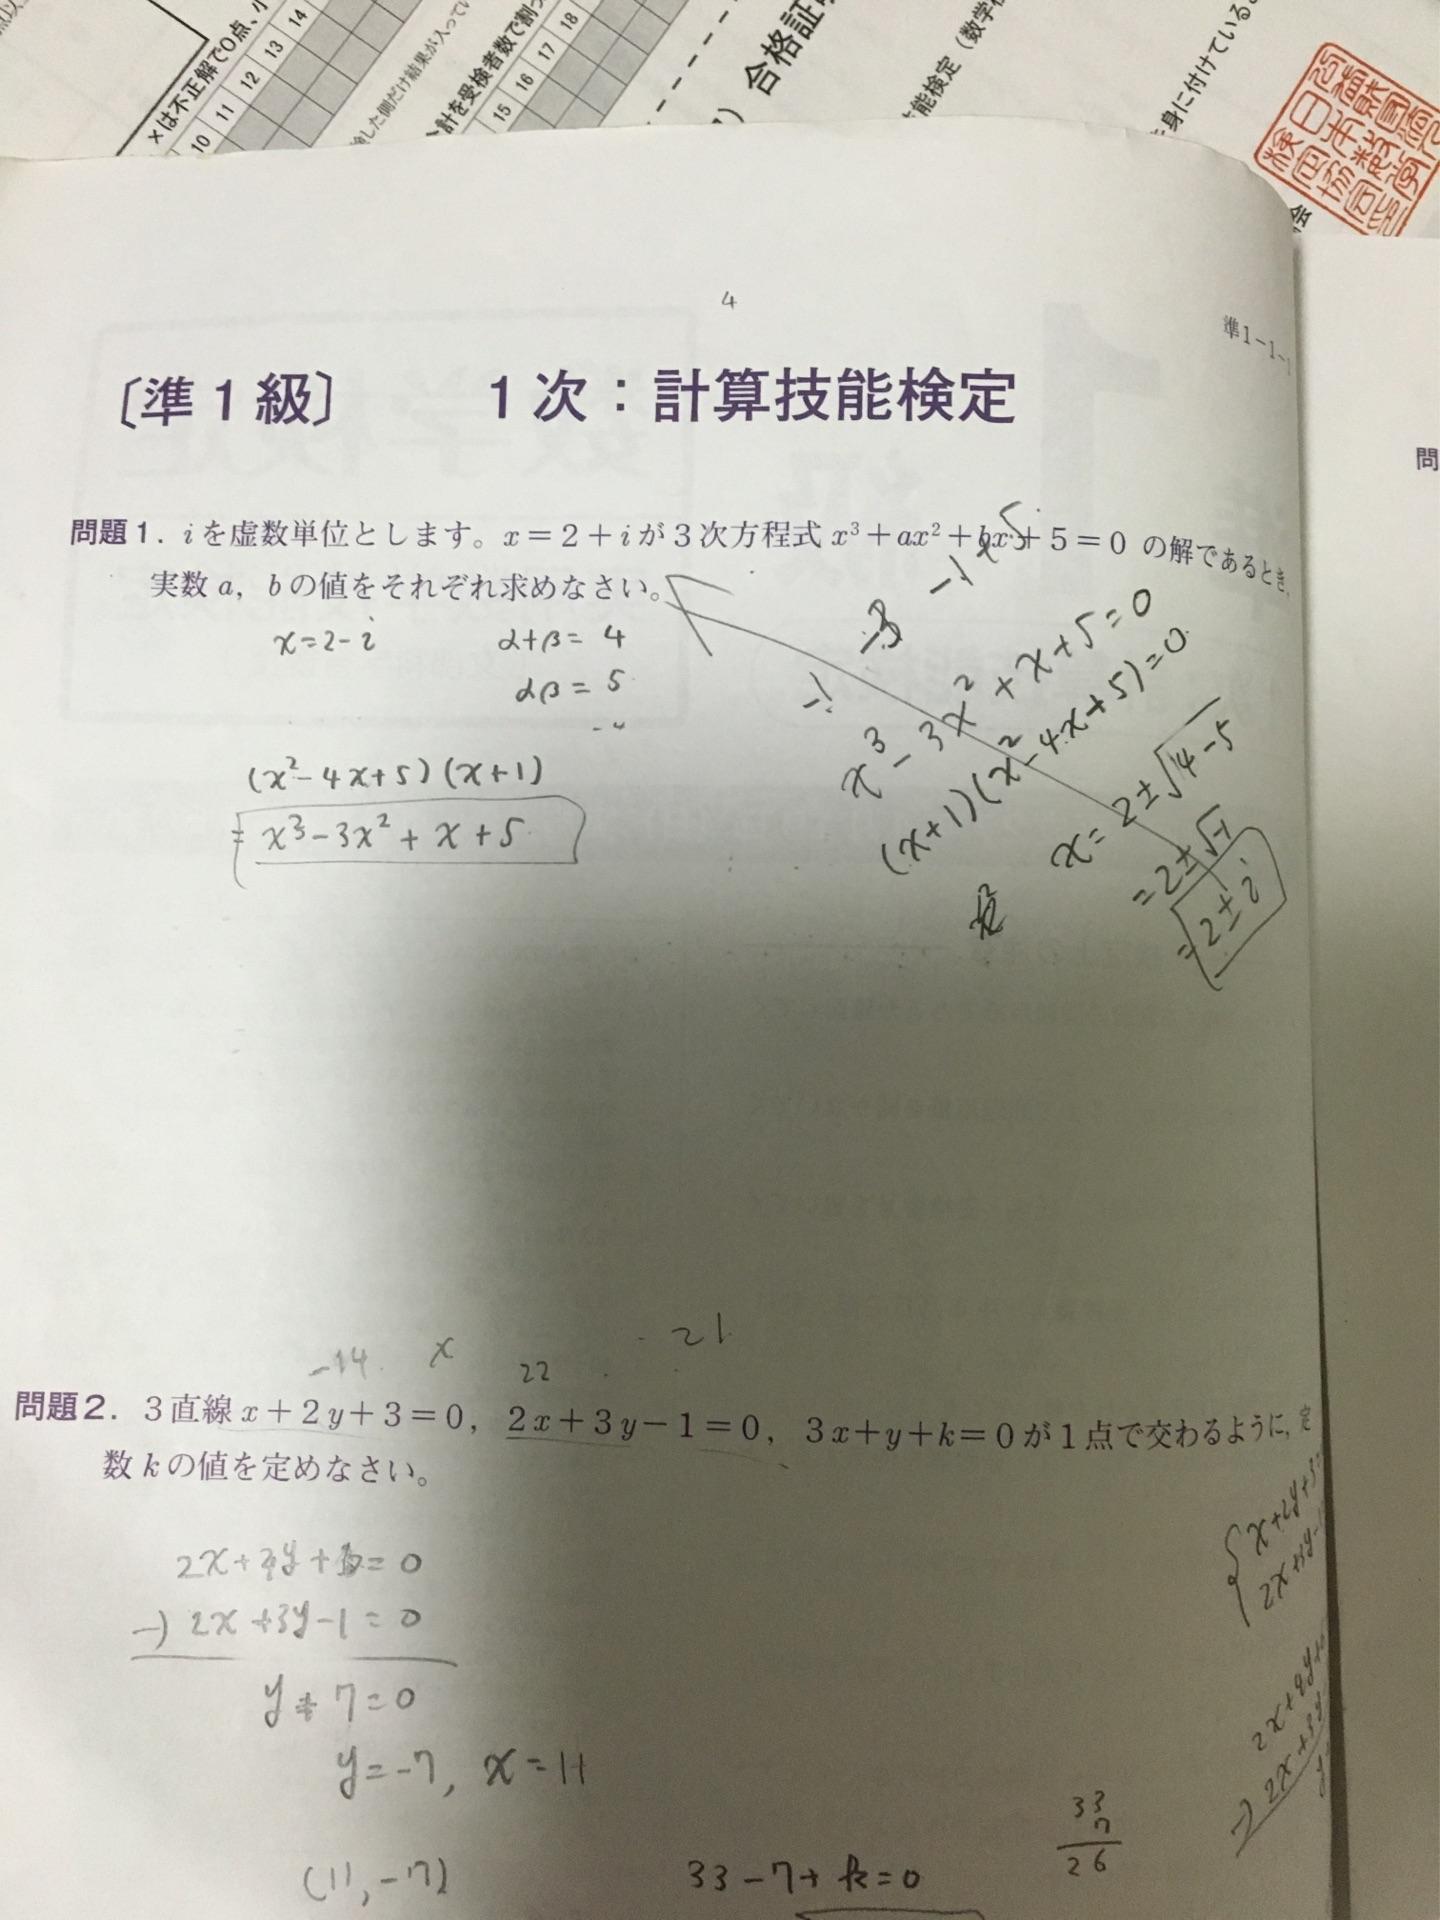 ×は不正解で0点、小
10 11 12 13 14
計を受検者数で割っ
15 16 17 18
した側だけ結果が入ってい
合格証
能検定（数学検
身に付けている
4
準1-1-
〔準1級〕 1次：計算技能検定
問題1. iを虚数単位とします。x＝2＋iが3次方程式 x³＋ax²＋bx＋5＝0 の解であるとき,
実数 a, bの値をそれぞれ求めなさい。
x=2-i
α+β=4
αβ=5
(x²-4x+5)(x+1)
= x³-3x²+x+5
-1 -3 -1 5
x³-3x²+x+5=0
(x+1)(x²-4x+5)=0
x=2±√4-5
=2±√-1
=2±i
-14 x 22 21
問題2. 3直線x＋2y＋3＝0, 2x＋3y－1＝0, 3x＋y＋k＝0が1点で交わるように, 定
数kの値を定めなさい。
-) 2x+3y-1=0
y+7=0
y=-7, x=11
(11, -7)
33-7+k=0
33
7
26
x+2y+3
2x+3y-
2x+4y+
-) 2x+3y
問